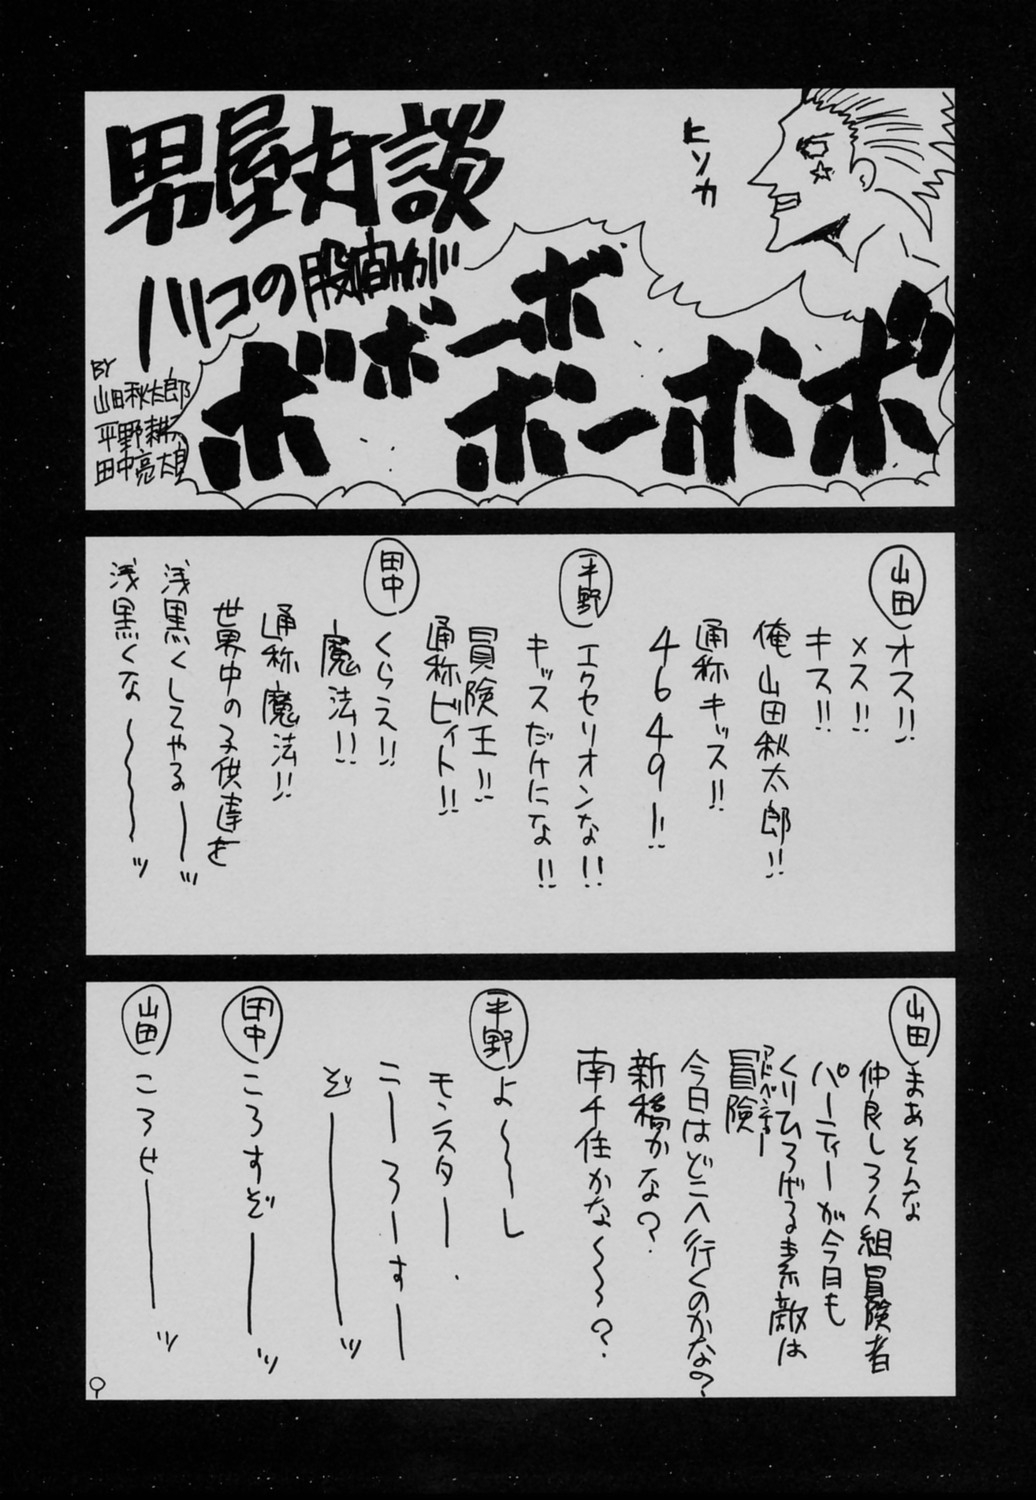 男屋対談
ヒソカ
川コの股間が
ボボーボ
ボーボボ
BY
山田秋太郎
平野耕
田中亮太郎
山田
オス!!
メス!!
キス!!
俺山田秋太郎!!
通称キッス!!
4649ー!!
平野
エクセリオンな!!
キッスだけにな!!
冒険王!!
通称ビィト!!
田中
くらえ!!
魔法!!
通称魔法!!
世界中の子供達を
浅黒くしてやるー〜ッ
浅黒くな〜〜〜ッ
山田
まぁそんな
仲良し3人組冒険者
パーティーが今日も
くりひろげる素敵は
冒険
アドベンチャー
今日はどこへ行くのかな?
新橋かな?
南千住かな〜〜?
平野
よ〜〜し
モンスター
こーろーすー
ぞーーッ
田中
ころすぞーーッ
山田
ころせーーッ